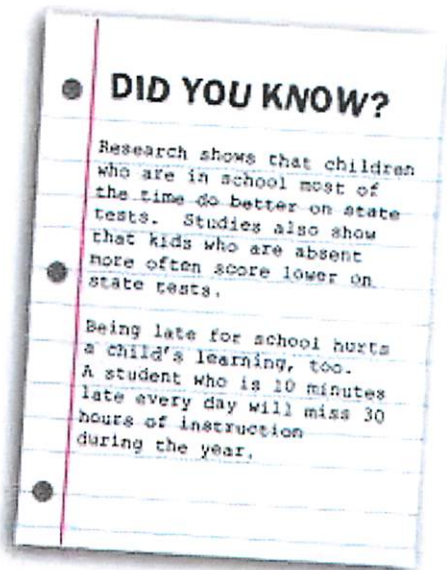 DID YOU KNOW?
Research shows that children
who are in school most of
the time do better on state
tests. Studies also show
that kids who are absent
more often score lower on
state tests.
Being late for school hurts
a child's learning, too.
A student who is 10 minutes
late every day will miss 30
hours of instruction
during the year.